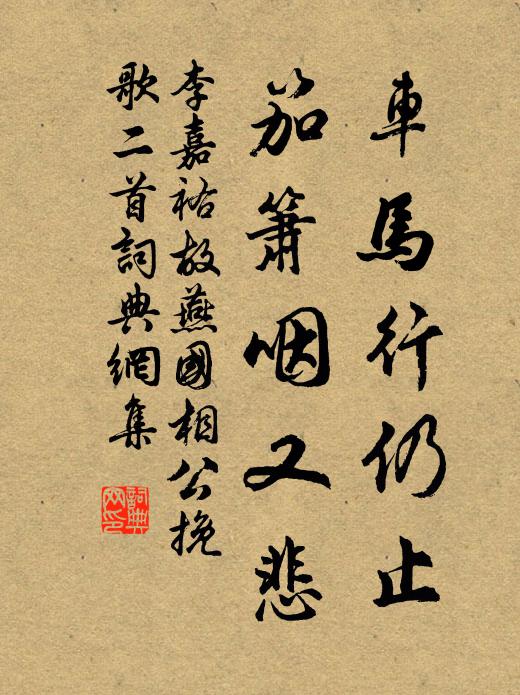 車馬行仍止
笳簫咽又悲
李嘉祐故燕國相公挽
歌二首詞典網集
詞典
网印